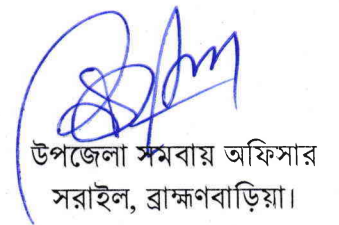 উপজেলা সমবায় অফিসার
সরাইল, ব্রাহ্মণবাড়িয়া।